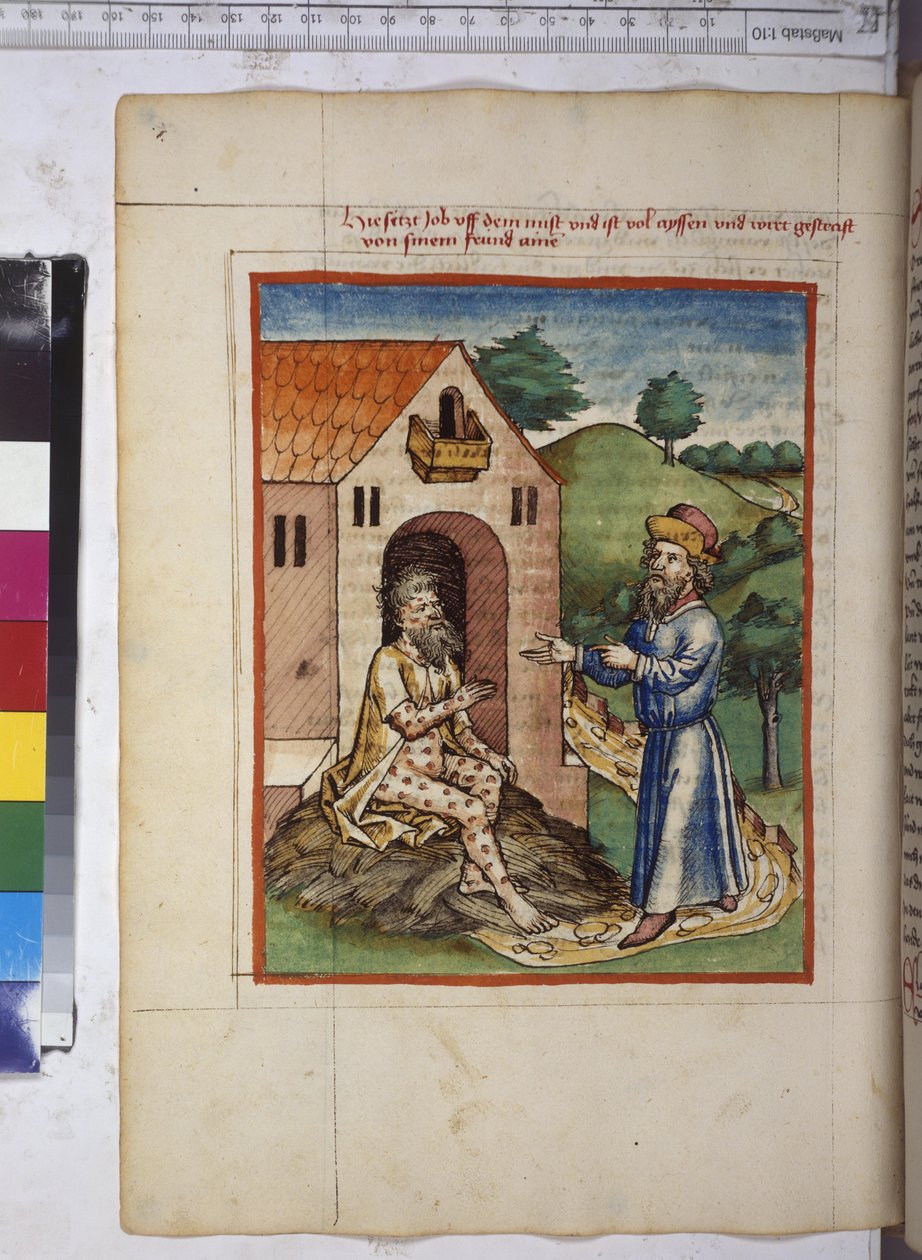 Hie sitzt Job vff dem mist vnd ist vol ayssen vnd wirt gestraft
von sinem freund aine
180 170 160 150 140 130 120 110 100 90 80 70 60 50 40 30 20 10
Maßstab 1:10